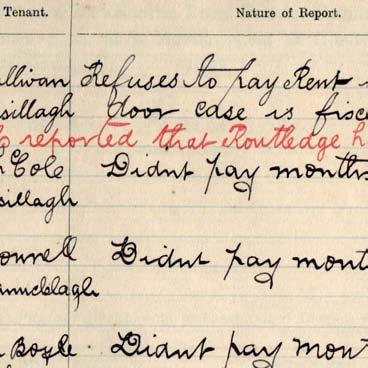 Tenant. Nature of Report.
ullivan Refuses to pay Rent
sillagh door case is fisc
reported that Routledge h
Cole Didnt pay months
sillagh
onnell Didnt pay mont
Boyle Didnt pay mont